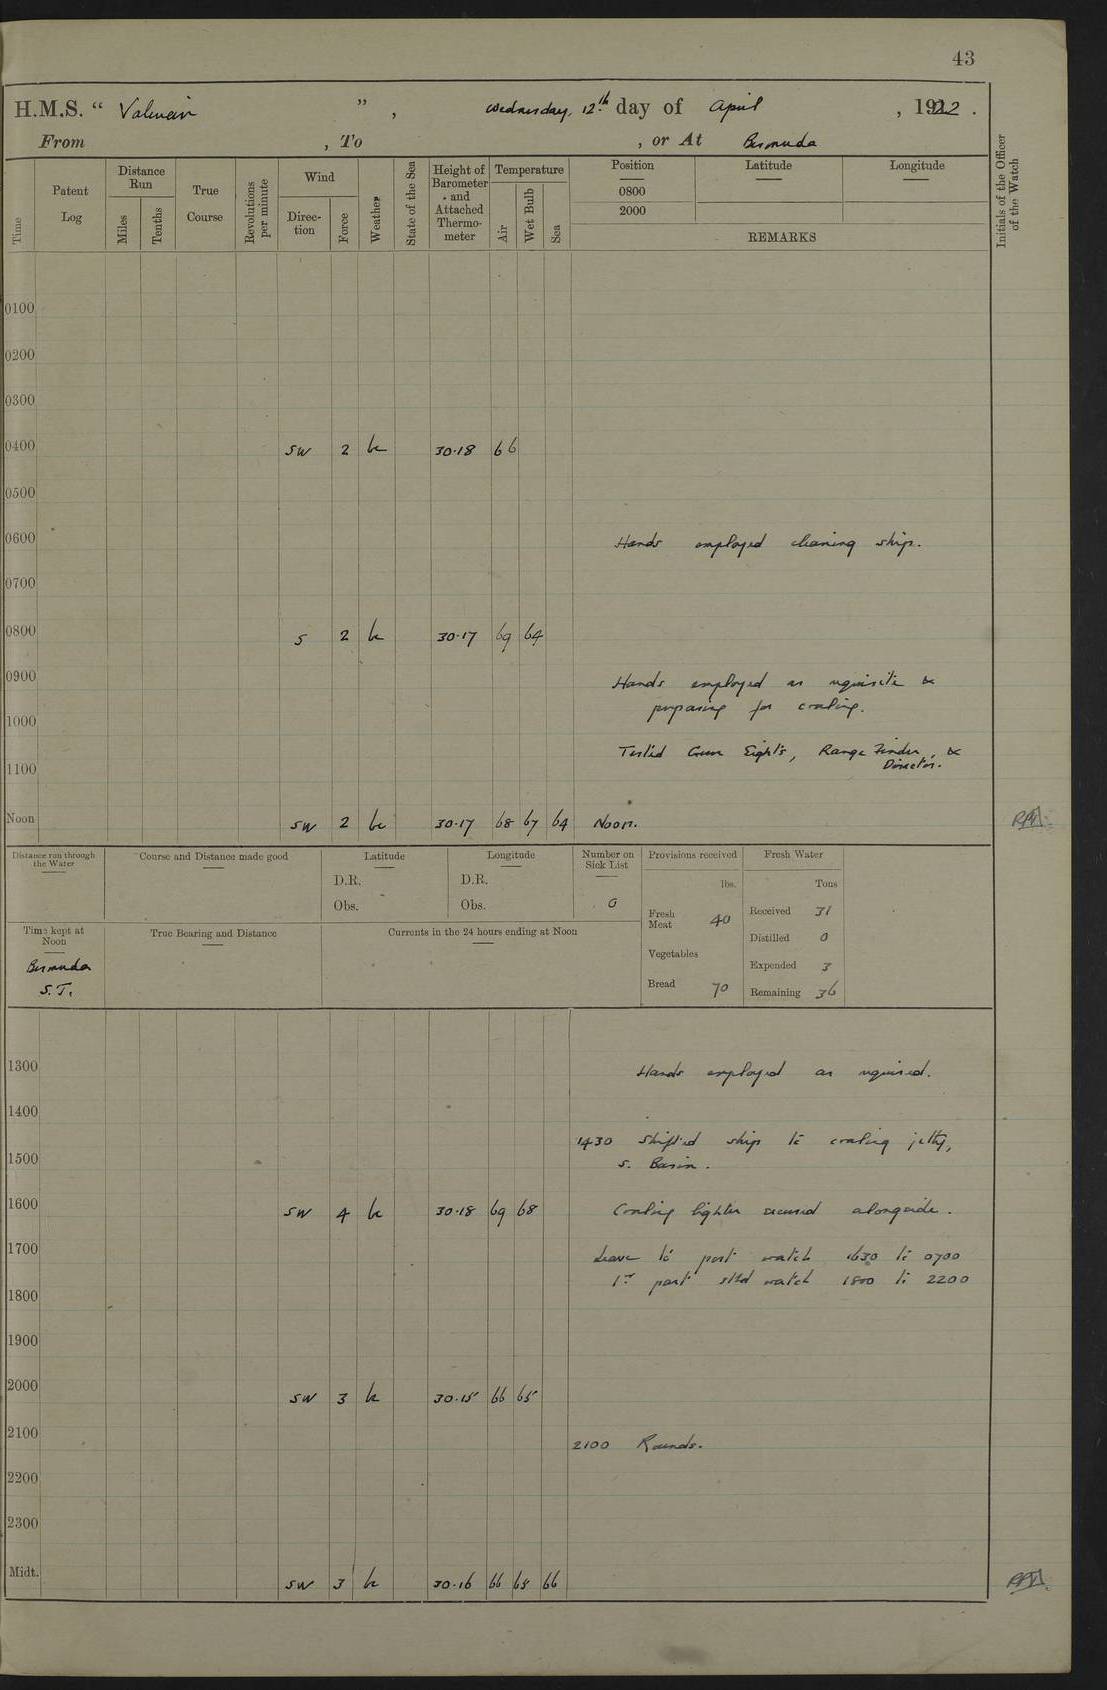 43
H.M.S. "Valerian", Wednesday, 12th day of April, 1922.
From , To , or At Bermuda
Time
Patent Log
Distance Run
Miles
Tenths
True Course
Revolutions per minute
Wind
Direction
Force
Weather
State of the Sea
Height of Barometer and Attached Thermometer
Temperature
Air
Wet Bulb
Sea
Position
0800
2000
Latitude
Longitude
REMARKS
Initials of the Officer of the Watch
0100
0200
0300
0400 SW 2 bc 30·18 66
0500
0600 Hands employed cleaning ship.
0700
0800 S 2 bc 30·17 69 64
0900 Hands employed as requisite &
preparing for coaling.
1000
Tested Gun Sights, Range Finder, &
Director.
1100
Noon SW 2 bc 30·17 68 67 64 Noon.
Distance run through the Water
Course and Distance made good
Latitude
D.R.
Obs.
Longitude
D.R.
Obs.
Number on Sick List
0
Provisions received
lbs.
Fresh Meat 40
Vegetables
Bread 70
Fresh Water
Tons
Received 31
Distilled 0
Expended 3
Remaining 36
Time kept at Noon
Bermuda
S.T.
True Bearing and Distance
Currents in the 24 hours ending at Noon
1300 Hands employed as required.
1400
1430 Shifted ship to coaling jetty,
1500 S. Basin.
1600 SW 4 bc 30·18 69 68 Coaling lighter secured alongside.
1700 Leave to port watch 1630 to 0700
1st part stbd watch 1800 to 2200
1800
1900
2000 SW 3 bc 30·15 66 65
2100
2100 Rounds.
2200
2300
Midt. SW 3 bc 30·16 66 65 66